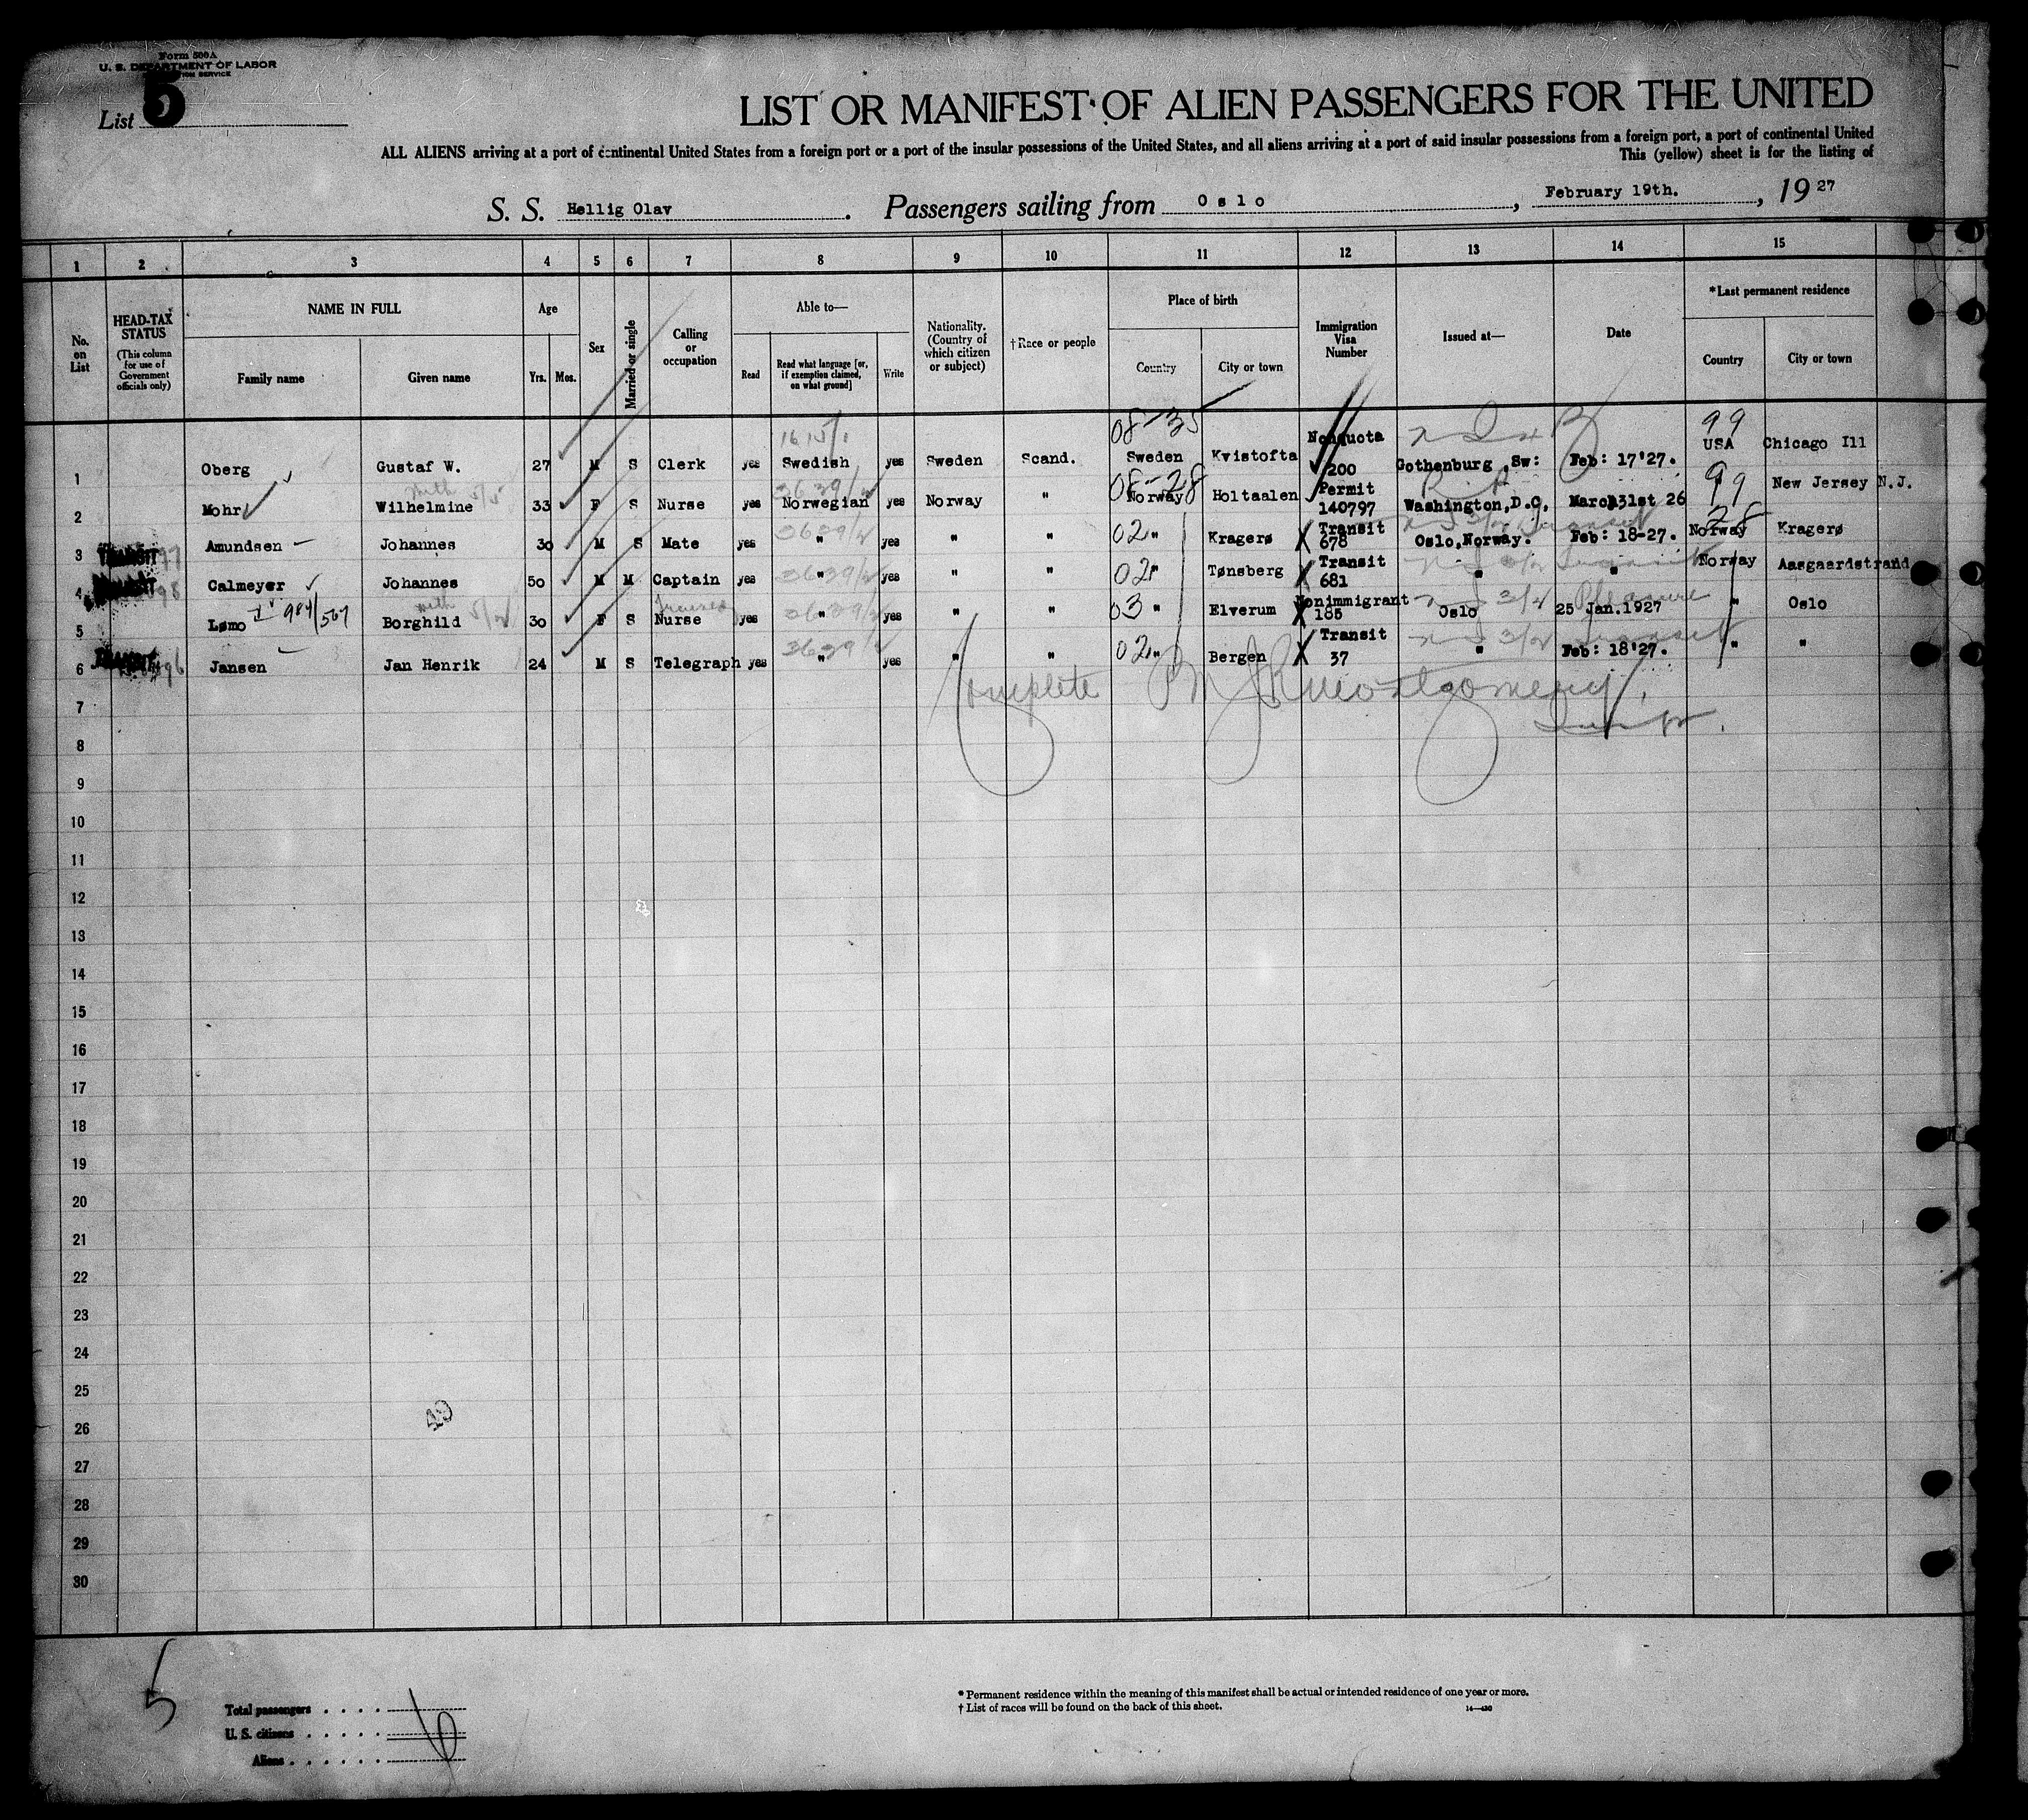 Form 500A
U. S. DEPARTMENT OF LABOR
List 5
LIST OR MANIFEST OF ALIEN PASSENGERS FOR THE UNITED
ALL ALIENS arriving at a port of continental United States from a foreign port or a port of the insular possessions of the United States, and all aliens arriving at a port of said insular possessions from a foreign port, a port of continental United
This (yellow) sheet is for the listing of
S. S. Hellig Olav. Passengers sailing from Oslo, February 19th., 1927
1 2 3 4 5 6 7 8 9 10 11 12 13 14 15
No. on List
HEAD-TAX STATUS
(This column for use of Government officials only)
NAME IN FULL
Family name Given name
Age
Yrs. Mos.
Sex
Married or single
Calling or occupation
Able to—
Read Read what language [or, if exemption claimed, on what ground] Write
Nationality. (Country of which citizen or subject)
†Race or people
Place of birth
Country City or town
Immigration Visa Number
Issued at—
Date
*Last permanent residence
Country City or town
08-35 99
1 Oberg Gustaf W. 27 M S Clerk yes Swedish yes Sweden Scand. Sweden Kvistofta Nonquota 200 Gothenburg,Sw: Feb: 17'27. USA Chicago Ill
08-28 99
2 Mohr Wilhelmine 33 F S Nurse yes Norwegian yes Norway " Norway Holtaalen Permit 140797 Washington,D.C, March31st 26 New Jersey N.J.
3 TRANSIT Amundsen Johannes 30 M S Mate yes " yes " " 02 " Kragerø X Transit 678 Oslo,Norway. Feb: 18-27. Norway 28 Kragerø
4 TRANSIT Calmeyer Johannes 50 M M Captain yes " yes " " 02 " Tønsberg X Transit 681 " " Norway Aasgaardstrand
5 Lømo 984/567 Borghild 30 F S Nurse yes " yes " " 03 " Elverum X Nonimmigrant 185 Oslo 25 Jan.1927 " Oslo
6 TRANSIT Jansen Jan Henrik 24 M S Telegraph yes " yes " " 02 " Bergen X Transit 37 " Feb: 18'27. " "
7
Complete Montgomery
8
9
10
11
12
13
14
15
16
17
18
19
20
21
22
23
24
25
26
27
28
29
30
49
5
Total passengers
U. S. citizens
Aliens
6
* Permanent residence within the meaning of this manifest shall be actual or intended residence of one year or more.
† List of races will be found on the back of this sheet.